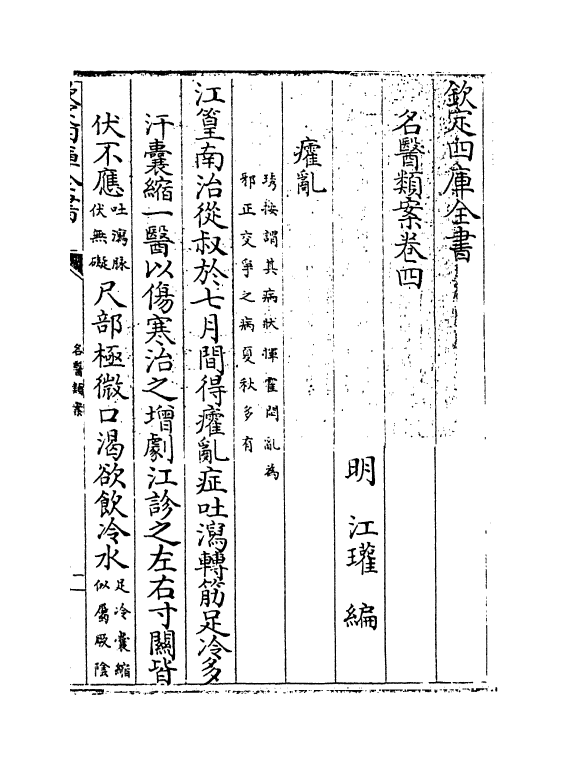 欽定四庫全書
名醫類案卷四
明 江瓘 編
癨亂
琇按謂其病狀惲霍悶亂為
邪正交爭之病夏秋多有
江篁南治從叔於七月間得癨亂症吐瀉轉筋足冷多
汗囊縮一醫以傷寒治之增劇江診之左右寸關皆
伏不應吐瀉脉伏無礙尺部極微口渴欲飲冷水足冷囊縮似屬厥陰
欽定四庫全書
名醫類案
一